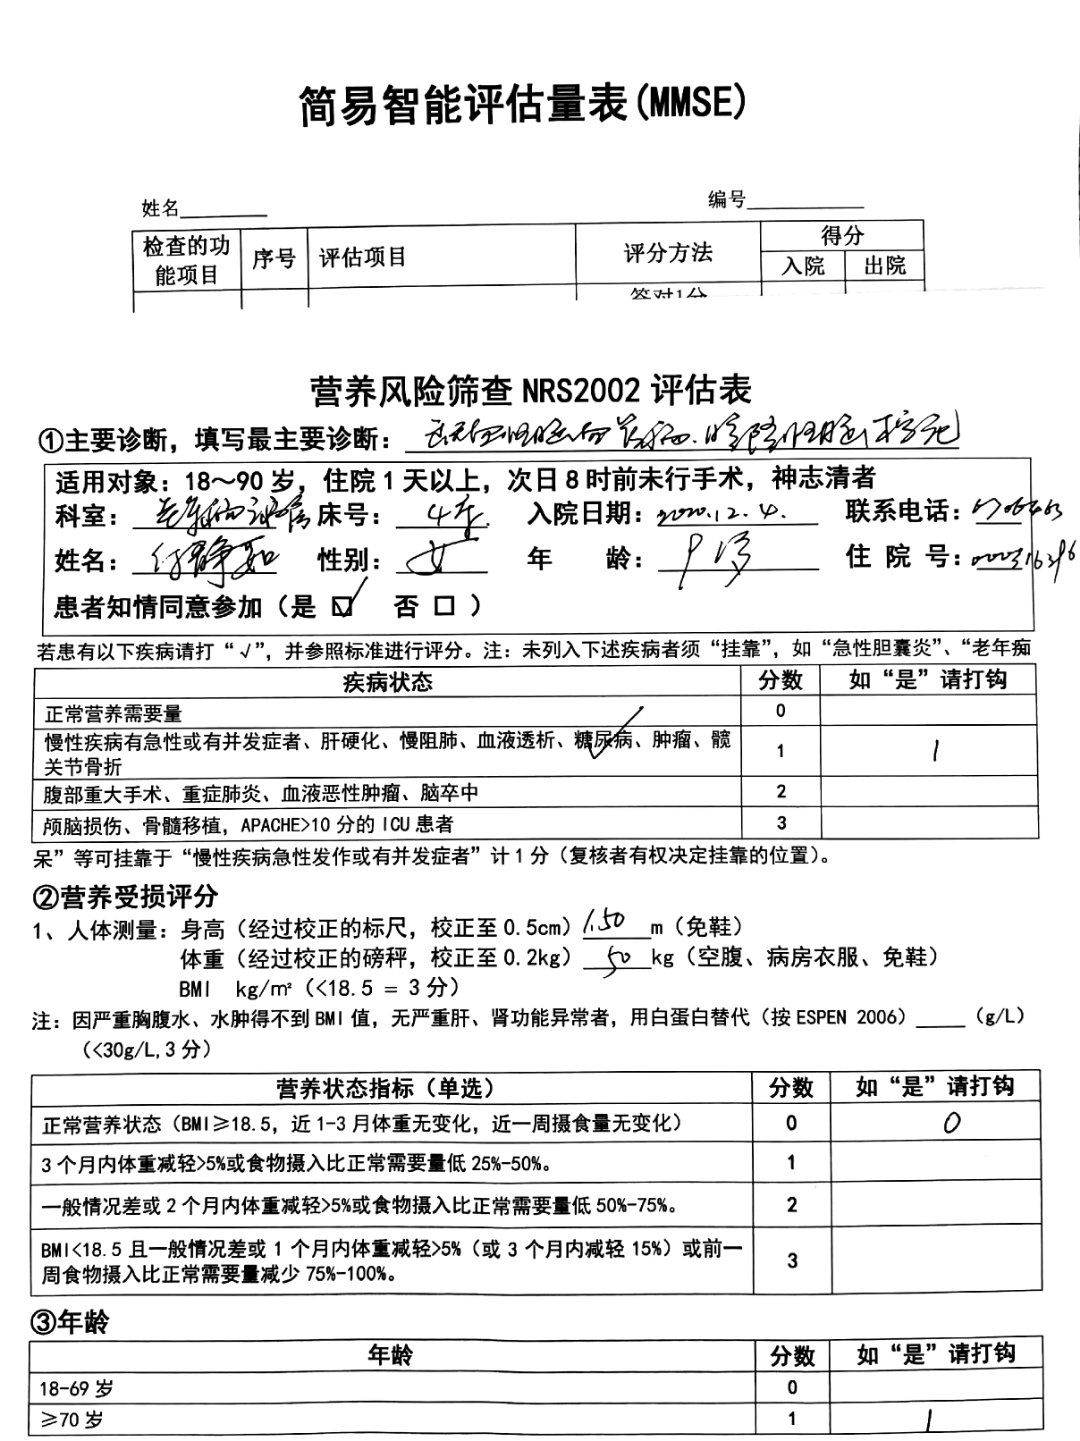 简易智能评估量表(MMSE)
姓名 编号
检查的功能项目 序号 评估项目 评分方法 得分
入院 出院
答对1分
营养风险筛查NRS2002评估表
①主要诊断，填写最主要诊断：
适用对象：18～90岁，住院1天以上，次日8时前未行手术，神志清者
科室： 床号： 入院日期：2020.12.4. 联系电话：
姓名： 性别：女 年 龄： 住 院 号：
患者知情同意参加（是 ☑ 否 □ ）
若患有以下疾病请打“√”，并参照标准进行评分。注：未列入下述疾病者须“挂靠”，如“急性胆囊炎”、“老年痴
疾病状态 分数 如“是”请打钩
正常营养需要量 0
慢性疾病有急性或有并发症者、肝硬化、慢阻肺、血液透析、糖尿病、肿瘤、髋 1 1
关节骨折
腹部重大手术、重症肺炎、血液恶性肿瘤、脑卒中 2
颅脑损伤、骨髓移植，APACHE>10分的ICU患者 3
呆”等可挂靠于“慢性疾病急性发作或有并发症者”计1分（复核者有权决定挂靠的位置）。
②营养受损评分
1、人体测量：身高（经过校正的标尺，校正至0.5cm）1.50m（免鞋）
体重（经过校正的磅秤，校正至0.2kg）50kg（空腹、病房衣服、免鞋）
BMI kg/m²（<18.5 = 3分）
注：因严重胸腹水、水肿得不到BMI值，无严重肝、肾功能异常者，用白蛋白替代（按ESPEN 2006） （g/L）
（<30g/L,3分）
营养状态指标（单选） 分数 如“是”请打钩
正常营养状态（BMI≥18.5，近1-3月体重无变化，近一周摄食量无变化） 0 0
3个月内体重减轻>5%或食物摄入比正常需要量低25%-50%。 1
一般情况差或2个月内体重减轻>5%或食物摄入比正常需要量低50%-75%。 2
BMI<18.5且一般情况差或1个月内体重减轻>5%（或3个月内减轻15%）或前一 3
周食物摄入比正常需要量减少75%-100%。
③年龄
年龄 分数 如“是”请打钩
18-69岁 0
≥70岁 1 1